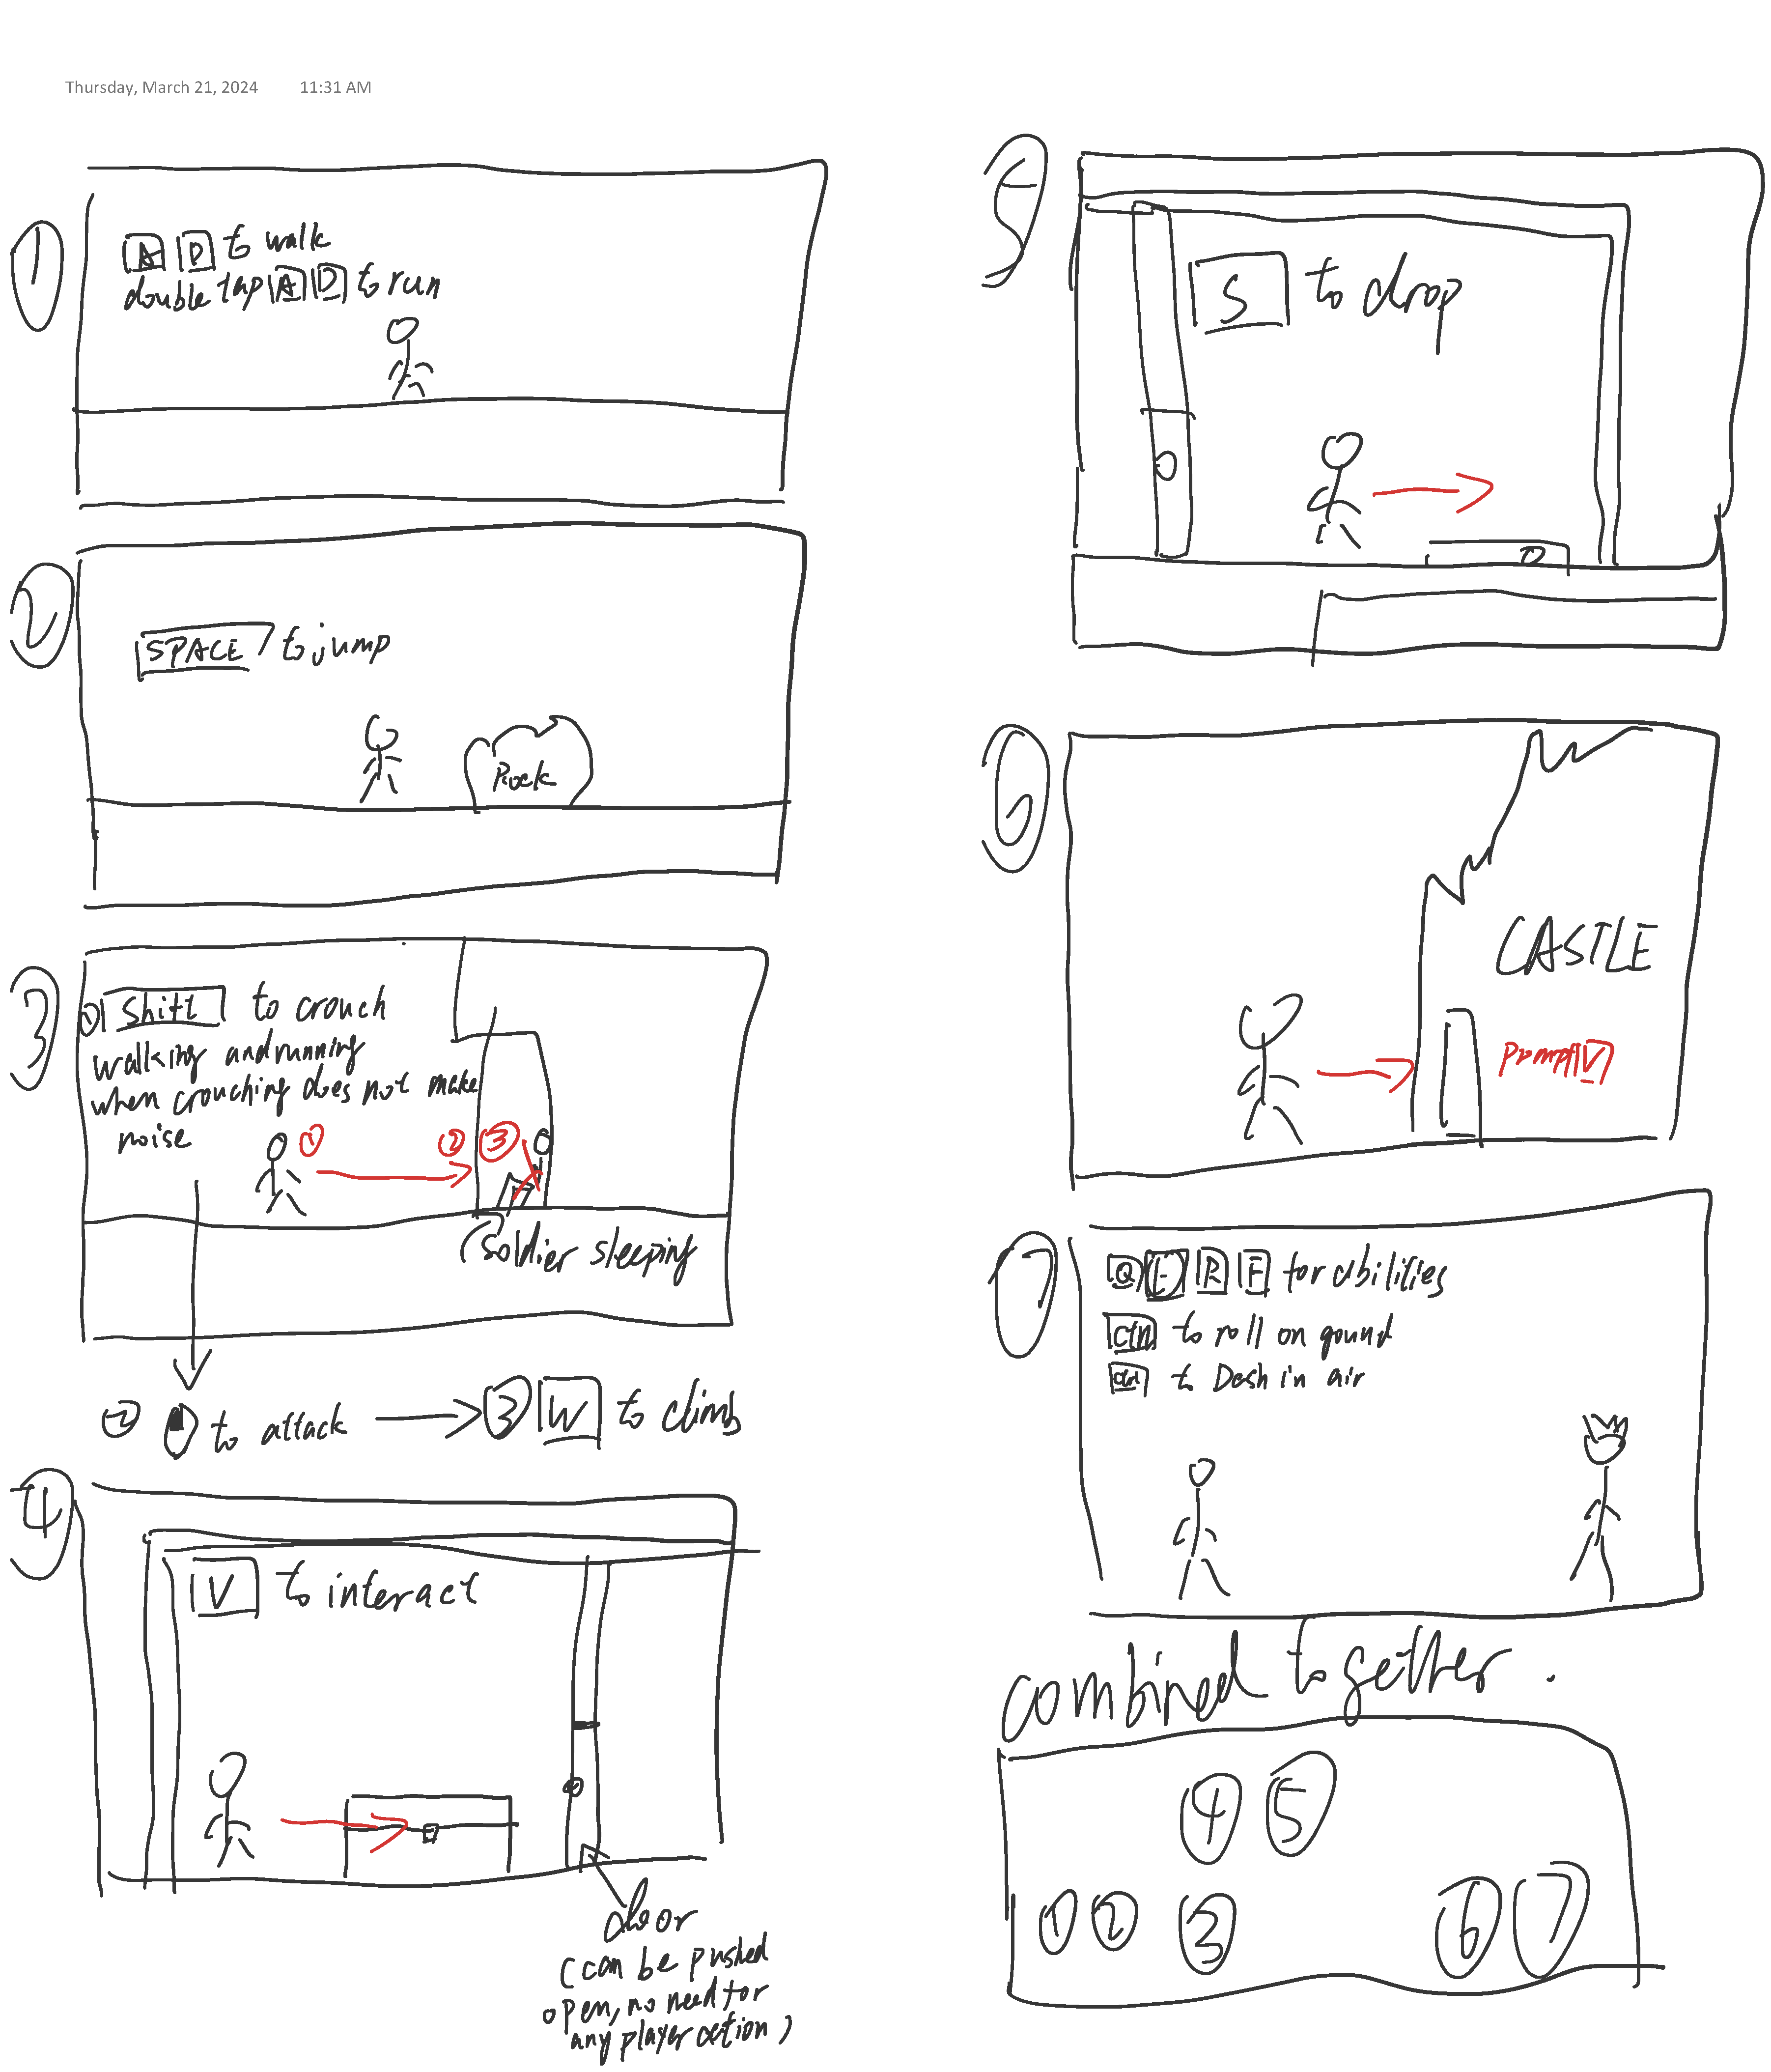 Thursday, March 21, 2024 11:31 AM
1
A D to walk
double tap A D to run
2
SPACE to jump
Rock
3
① Shift to crouch
walking and running
when crouching does not make
noise
① ② ③
(Soldier sleeping
② to attack → ③ W to climb
4
V to interact
door
(can be pushed
open, no need for
any player action)
5
S to drop
6
CASTLE
Prompt V
7
Q E R F for abilities
Ctrl to roll on gound
Ctrl to Dash in air
combined together.
4 5
1 2 3 6 7